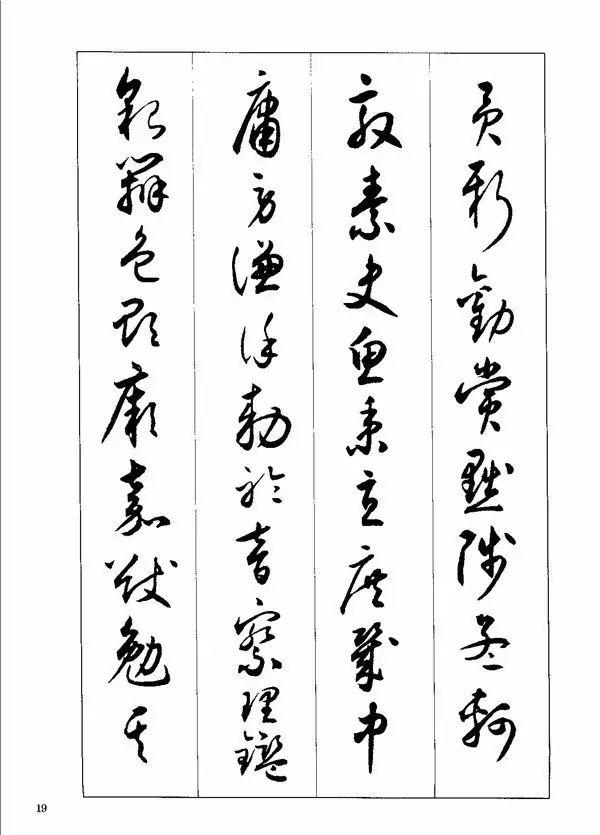 貢新勸賞黜陟孟軻
敦素史魚秉直庶幾中
庸勞謙謹勅聆音察理鑑
貌辨色貽厥嘉猷勉其
19